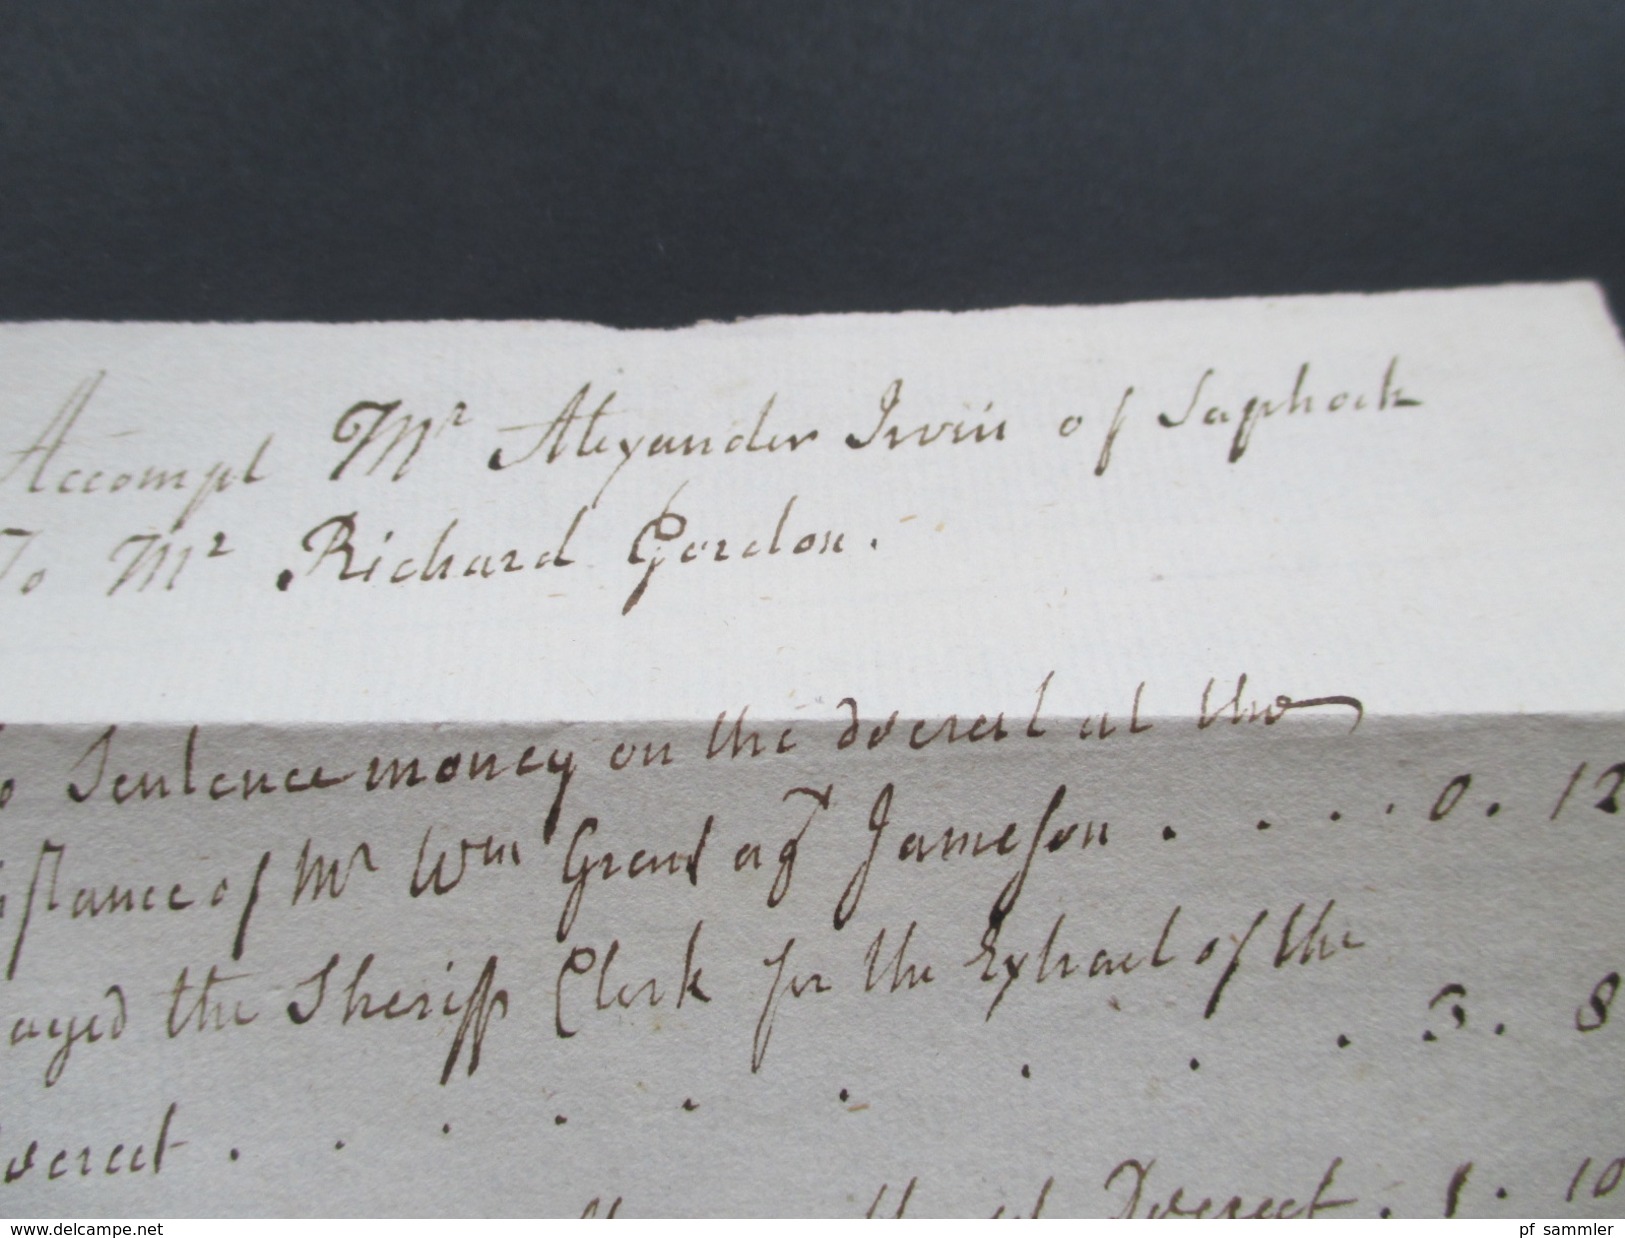 Accompt Mr Alexander Irvin of Saphock
To Mr Richard Gordon.
To Sentence money on the decreet at the
instance of Mr Wm Grant agt Jameson . . . . 0. 12
payed the Sheriff Clerk for the Extract of the
decreet . . . . . . . . . 3. 8
Decreet . 1. 10
www.delcampe.net
pf_sammler